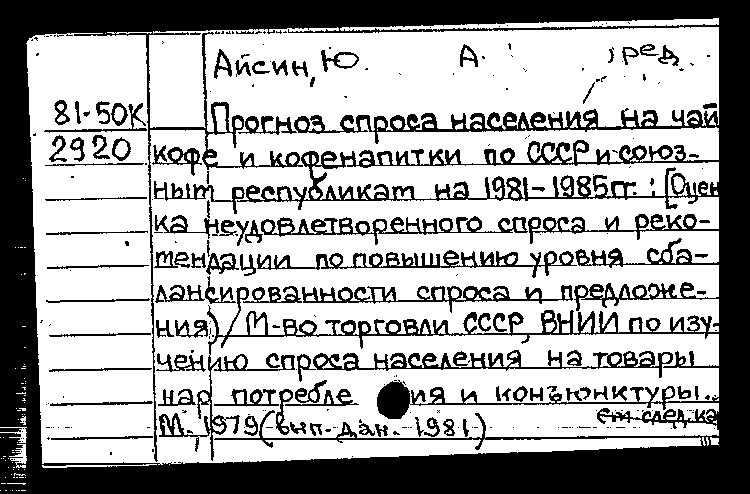 Айсин, Ю. А. , ред.
81-50К Прогноз спроса населения на чай
2920 кофе и кофенапитки по СССР и союз-
ным республикам на 1981-1985гг. : [Оцен
ка неудовлетворенного спроса и реко-
мендации по повышению уровня сба-
лансированности спроса и предложе-
ния) / М-во торговли СССР, ВНИИ по изу-
чению спроса населения на товары
нар потребле ия и конъюнктуры..
М., 1979 (вып. дан. 1981)
см след ка